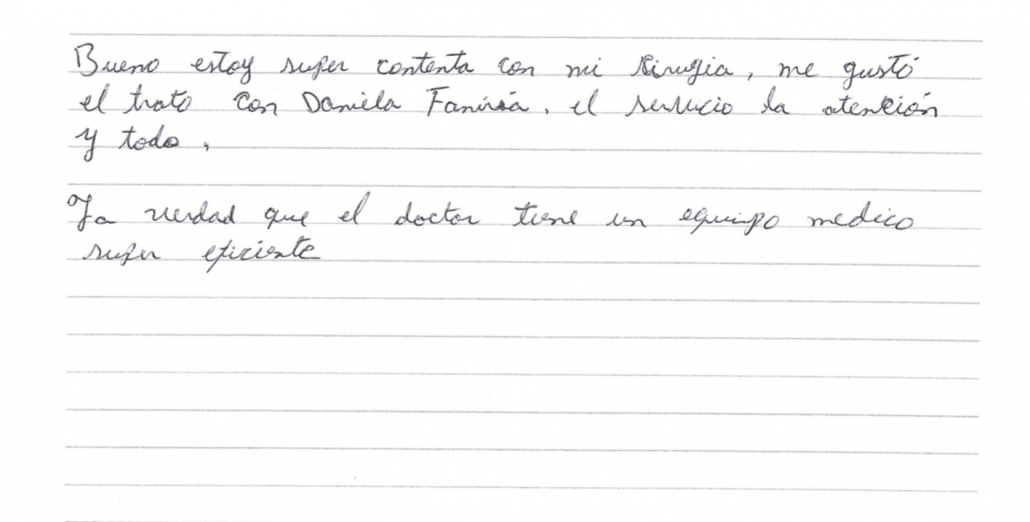 Bueno estoy super contenta con mi Sirugia, me gustó
el trato con Daniela, el servicio la atención
y todo,
La verdad que el doctor tiene un equipo medico
super eficiente